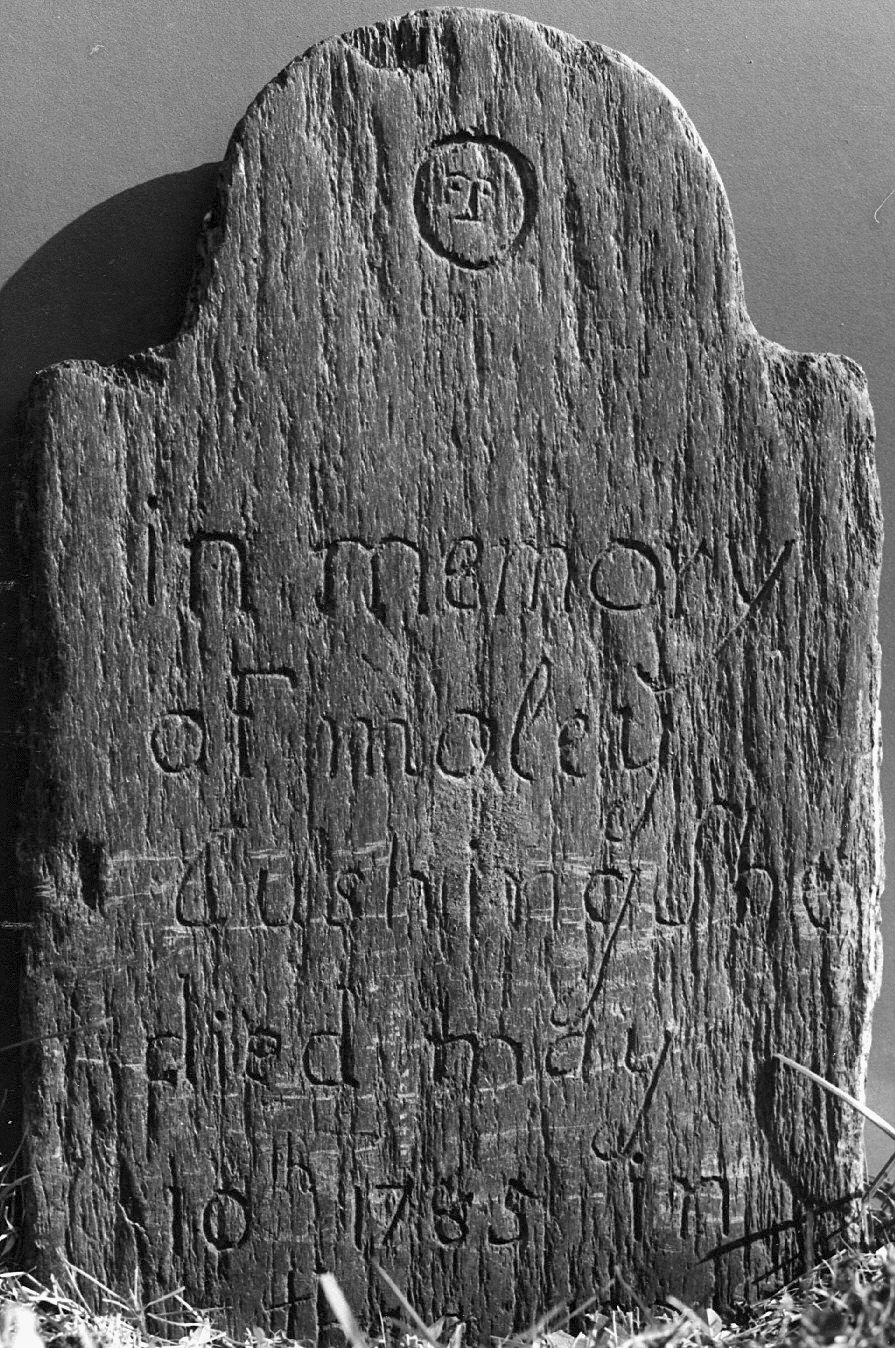 in memory
of moley
Cushing who
died may
10th 1785 in